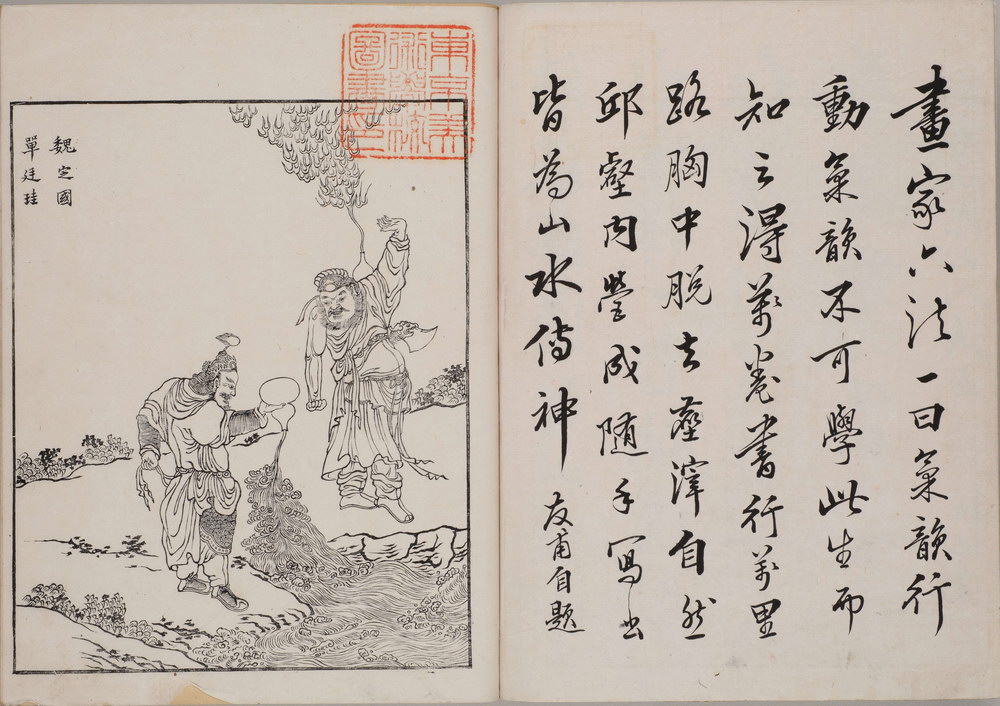 畫家六法一曰氣韻行
動氣韻不可學此生而
知之得萬卷書行萬里
路胸中脫去塵滓自然
邱壑内營成隨手寫出
皆為山水傳神
友甫自題
東京美
術學校
圖書印
魏定國
單廷珪